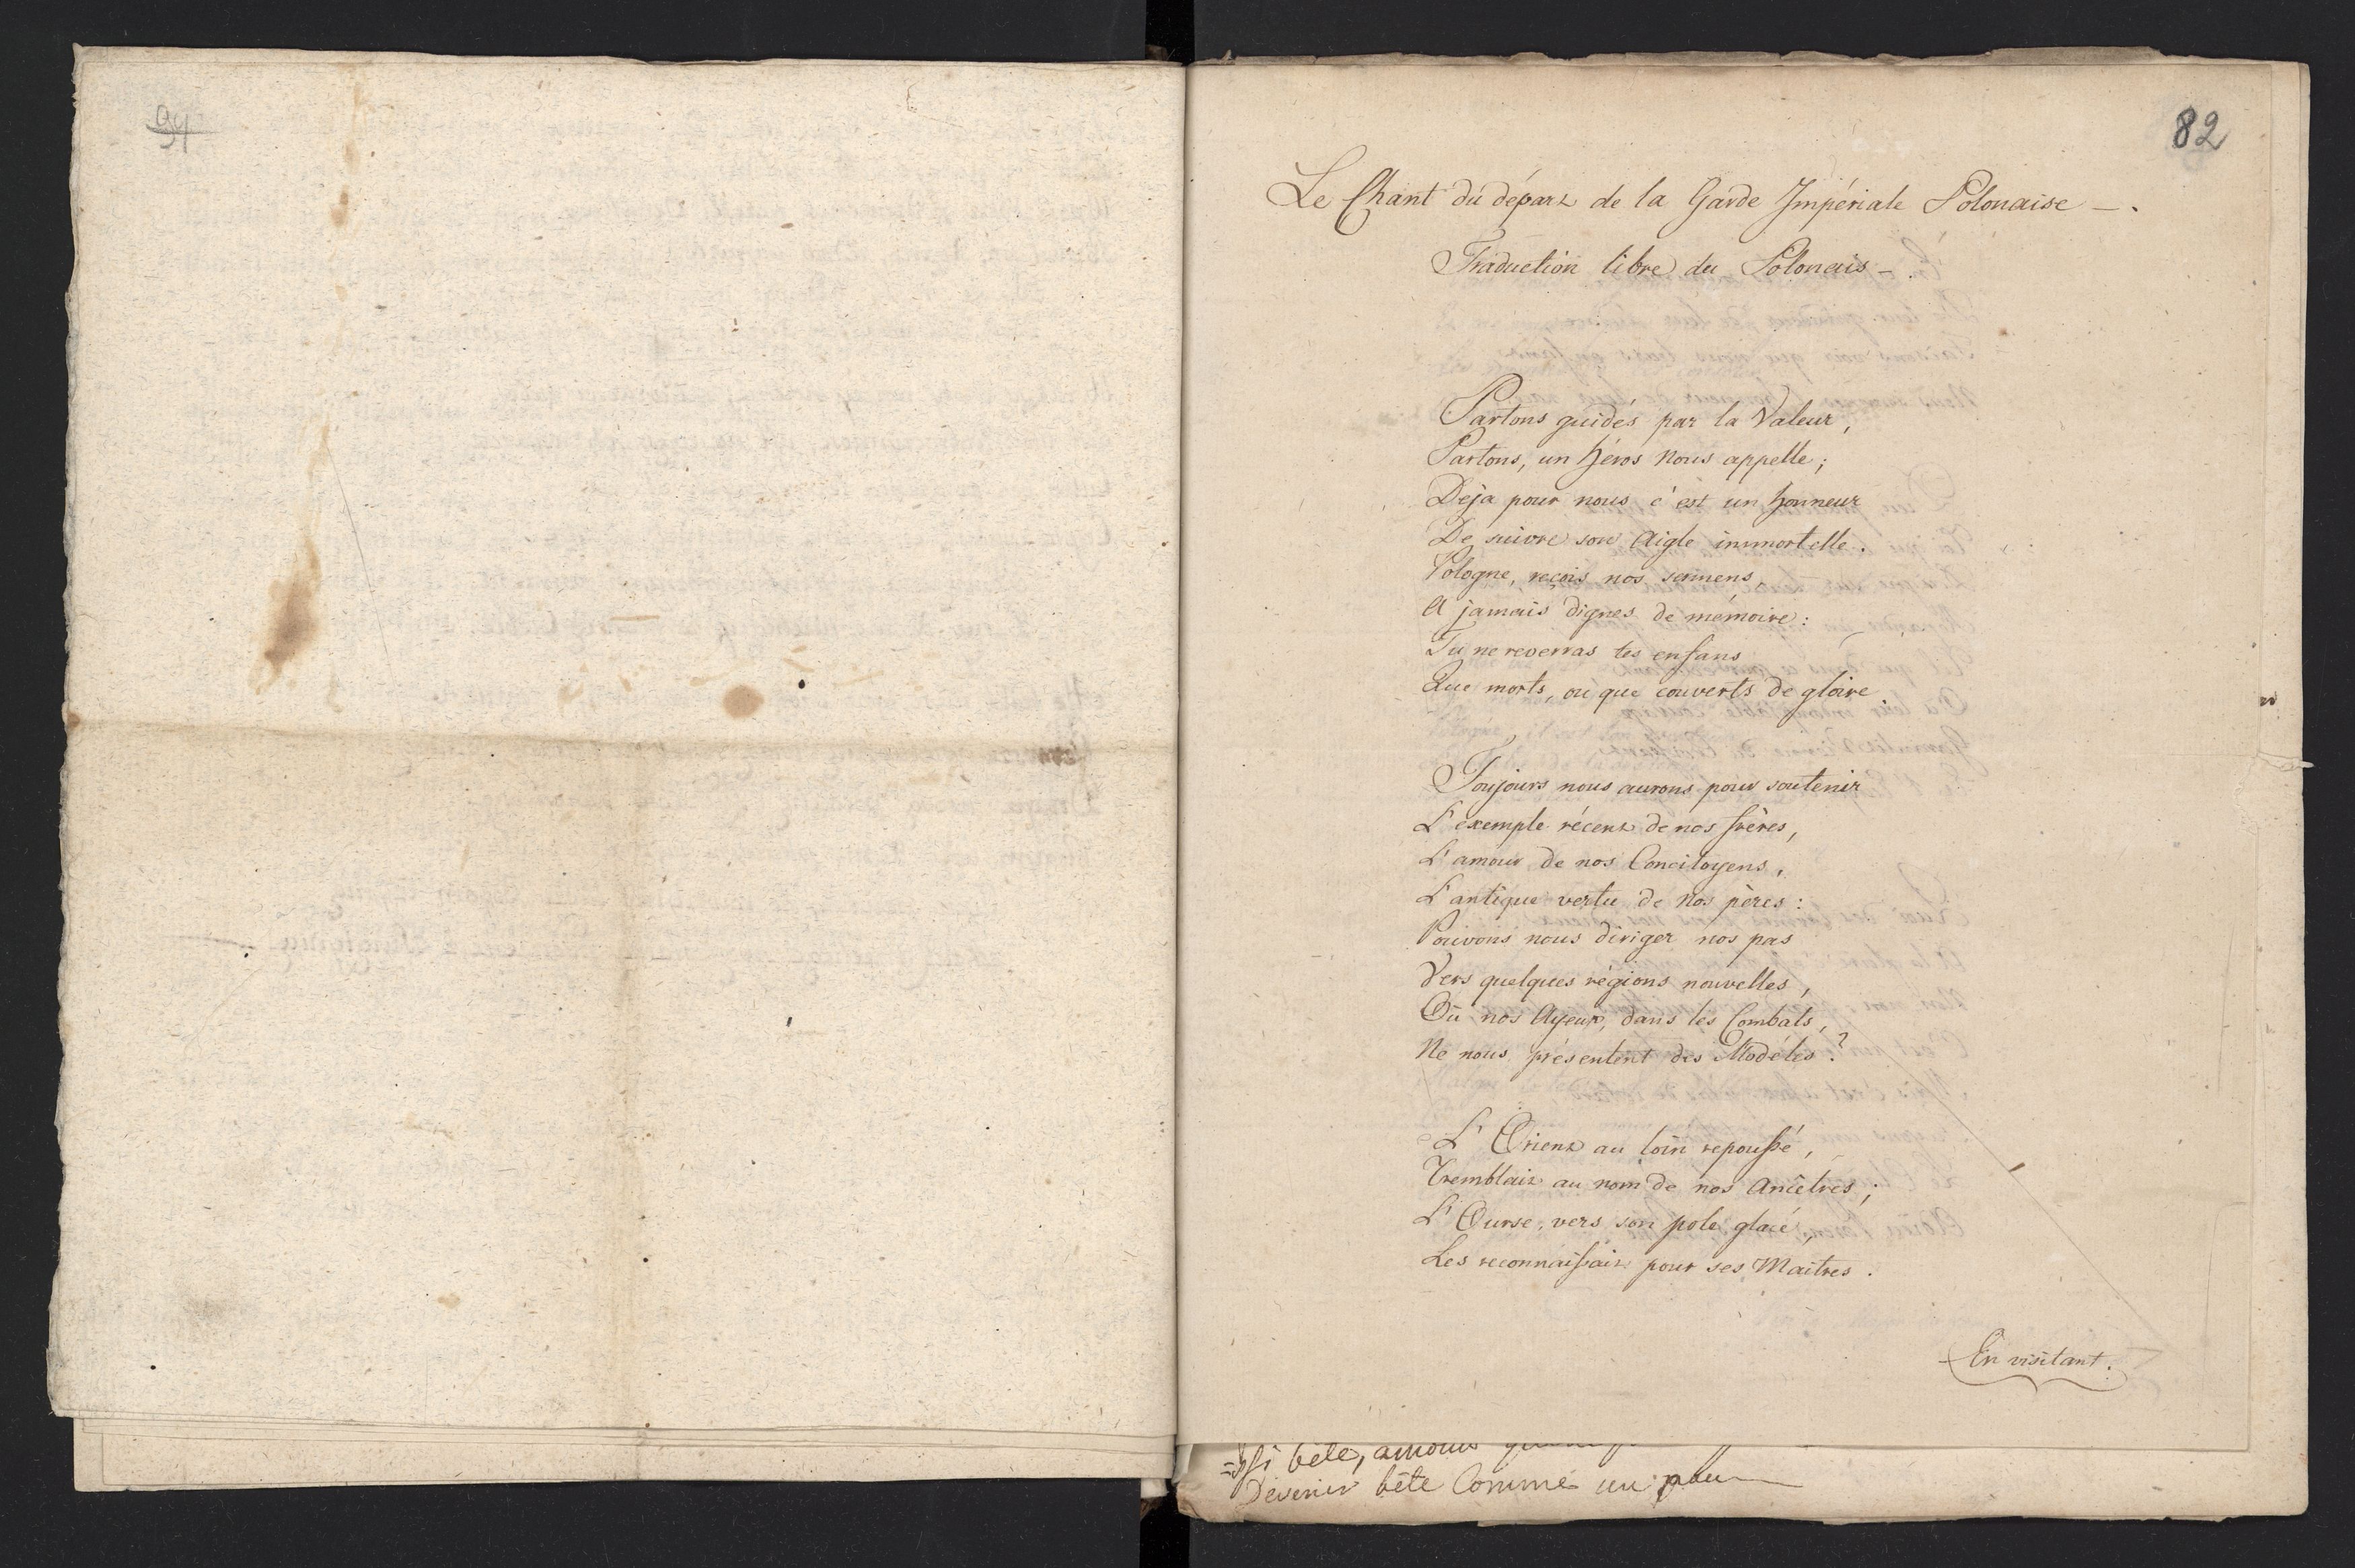 94
82
Le Chant du départ de la Garde Impériale Polonaise –.
Traduction libre du Polonais –.
Partons guidés par la Valeur,
Partons, un héros nous appelle;
Deja pour nous c'est un honneur
De suivre son Aigle immortelle.
Pologne, reçois nos sermens,
A jamais dignes de mémoire:
Tu ne reverras tes enfans
Que morts, ou que couverts de gloire.
Toujours nous aurons pour soutenir
L'exemple récent de nos frères,
L'amour de nos Concitoyens,
L'antique vertu de nos pères:
Pouvons nous diriger nos pas
Vers quelques régions nouvelles,
Où nos Ayeux, dans les Combats,
Ne nous présentent des Modèles?
L'Orient au loin repoussé,
Tremblait au nom de nos Ancêtres;
L'Ourse, vers son pole glacé,
Les reconnaissait pour ses Maîtres.
En visitant.
si bete, amour
Devenir bête comme un